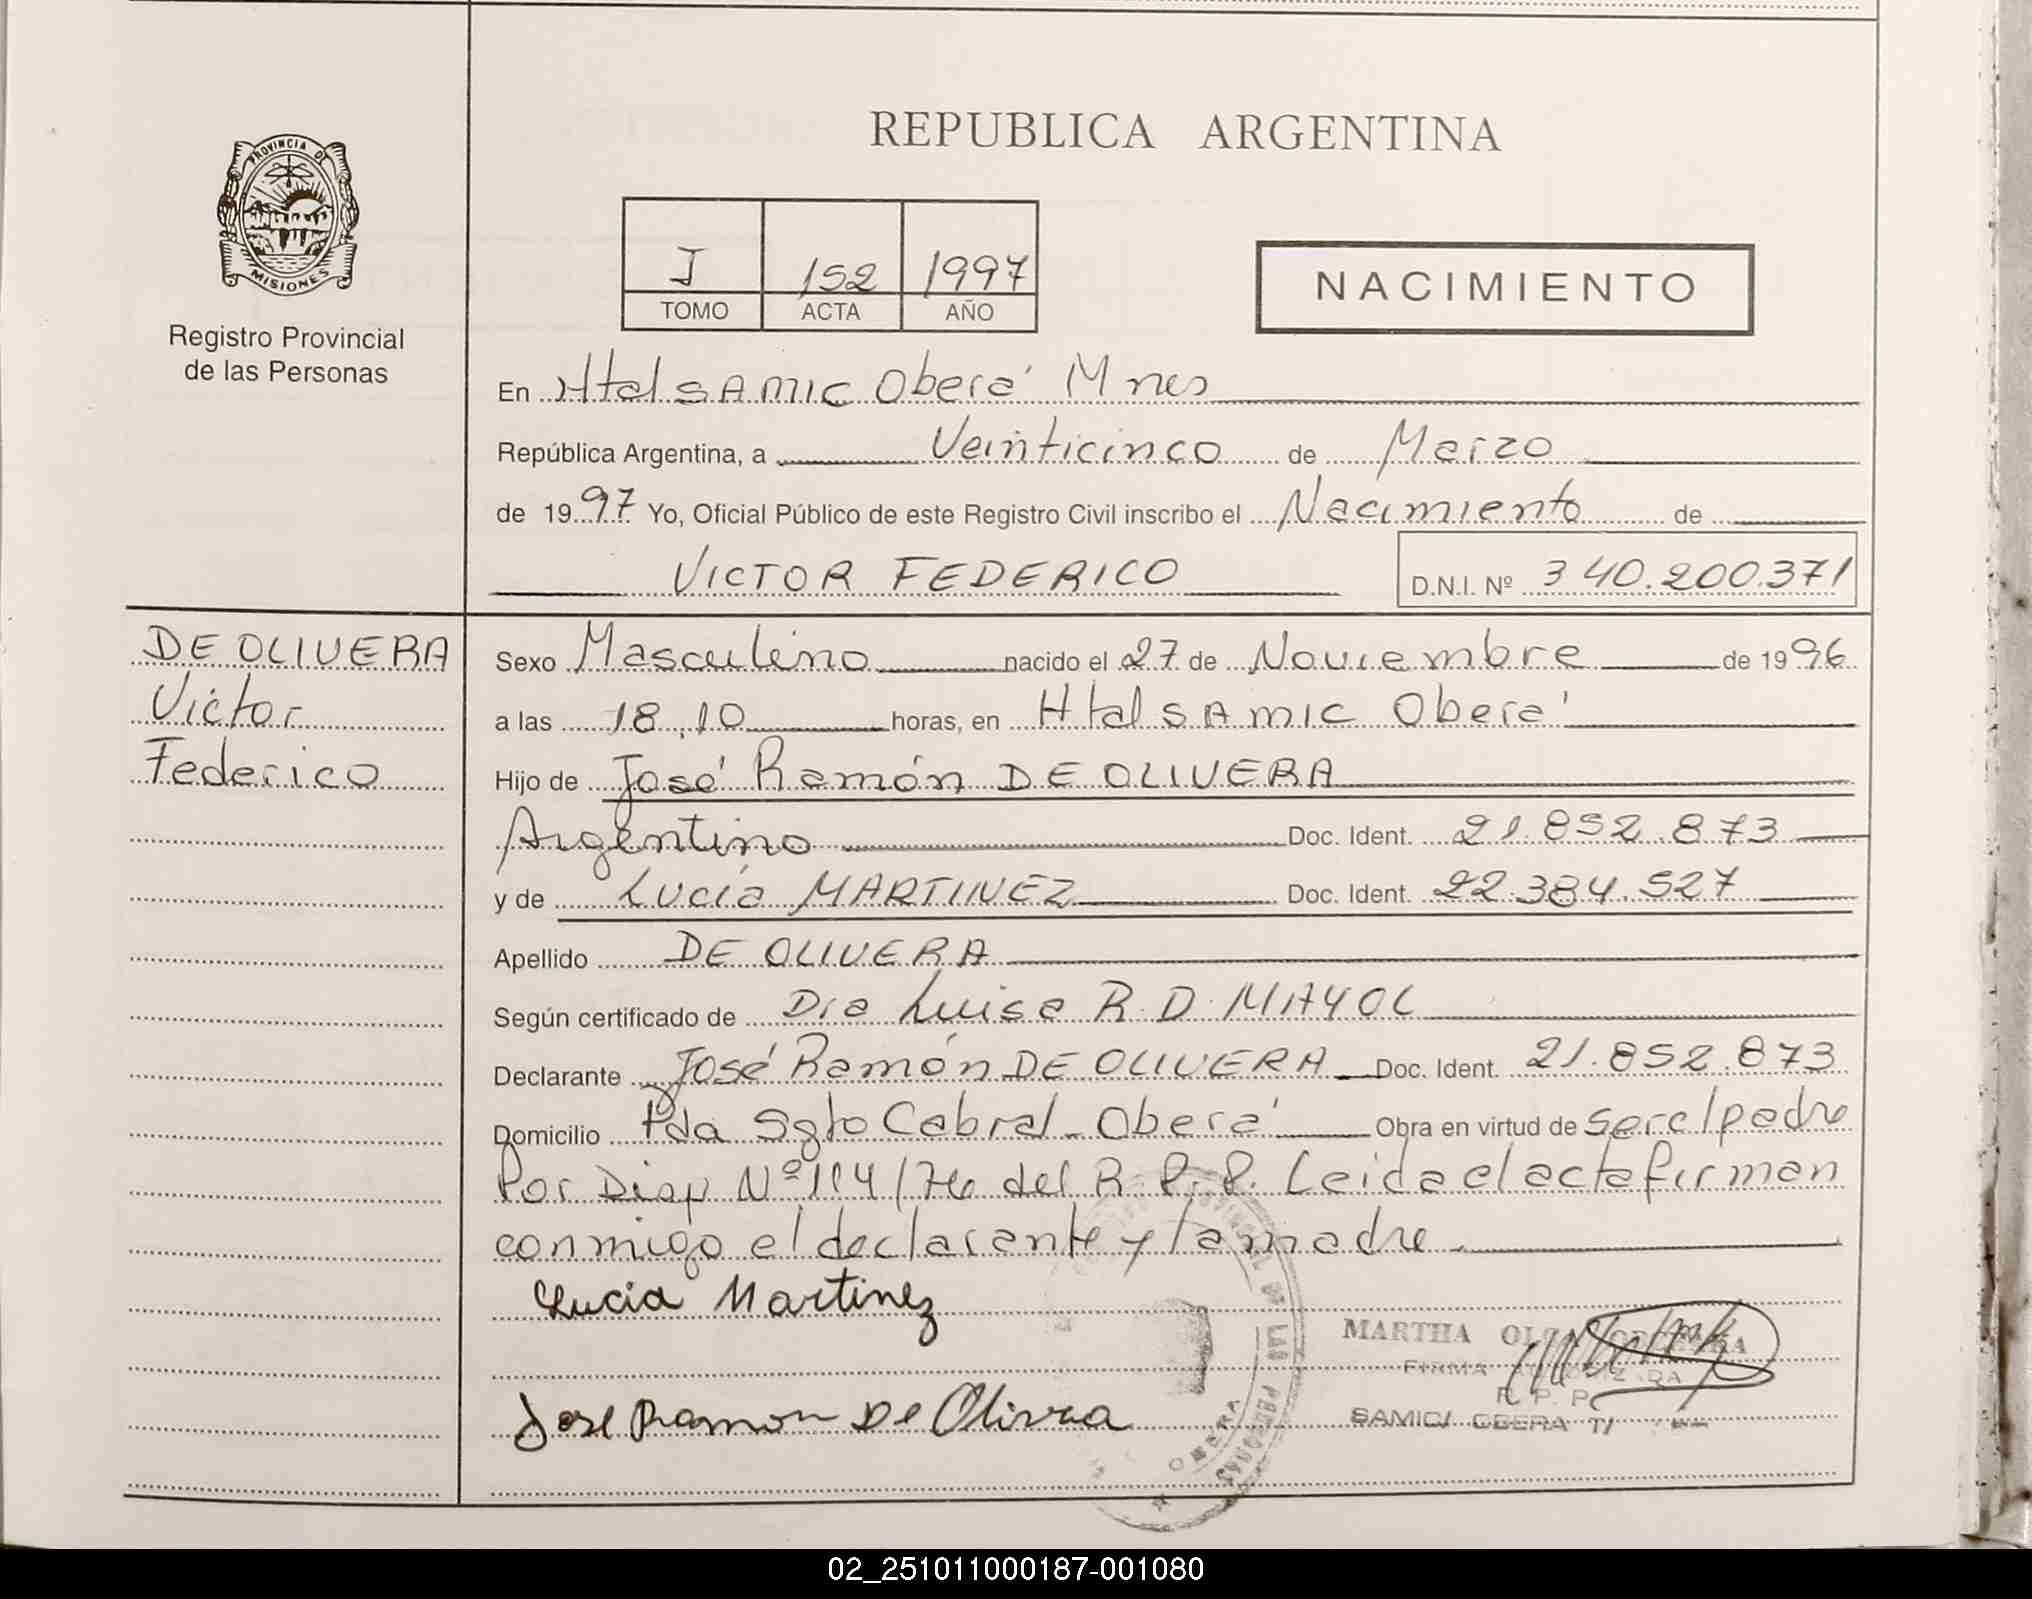 PROVINCIA DE
MISIONES
Registro Provincial
de las Personas
REPUBLICA ARGENTINA
I 152 1997
TOMO ACTA AÑO
NACIMIENTO
En Htal SAMIC Oberá Mnes
República Argentina, a Veinticinco de Marzo
de 1997 Yo, Oficial Público de este Registro Civil inscribo el Nacimiento de
VICTOR FEDERICO D.N.I. Nº 340.200.371
DE OLIVERA
Victor
Federico
Sexo Masculino nacido el 27 de Noviembre de 1996
a las 18,10 horas, en Htal SAMIC Oberá
Hijo de José Ramón DE OLIVERA
Argentino Doc. Ident. 21.852.873
y de Lucía MARTINEZ Doc. Ident. 22.384.527
Apellido DE OLIVERA
Según certificado de Dra Luisa R.D. MAYOL
Declarante José Ramón DE OLIVERA Doc. Ident. 21.852.873
Domicilio Pda Sgto Cabral - Oberá Obra en virtud de ser el padre
Por Disp Nº 114/76 del R.P.P. Leida el acta firman
conmigo el declarante y la madre
Lucia Martinez
MARTHA
FIRMA
R. P. P.
SAMIC/ OBERA
Jose Ramon De Olivra
OBERA
02_251011000187-001080